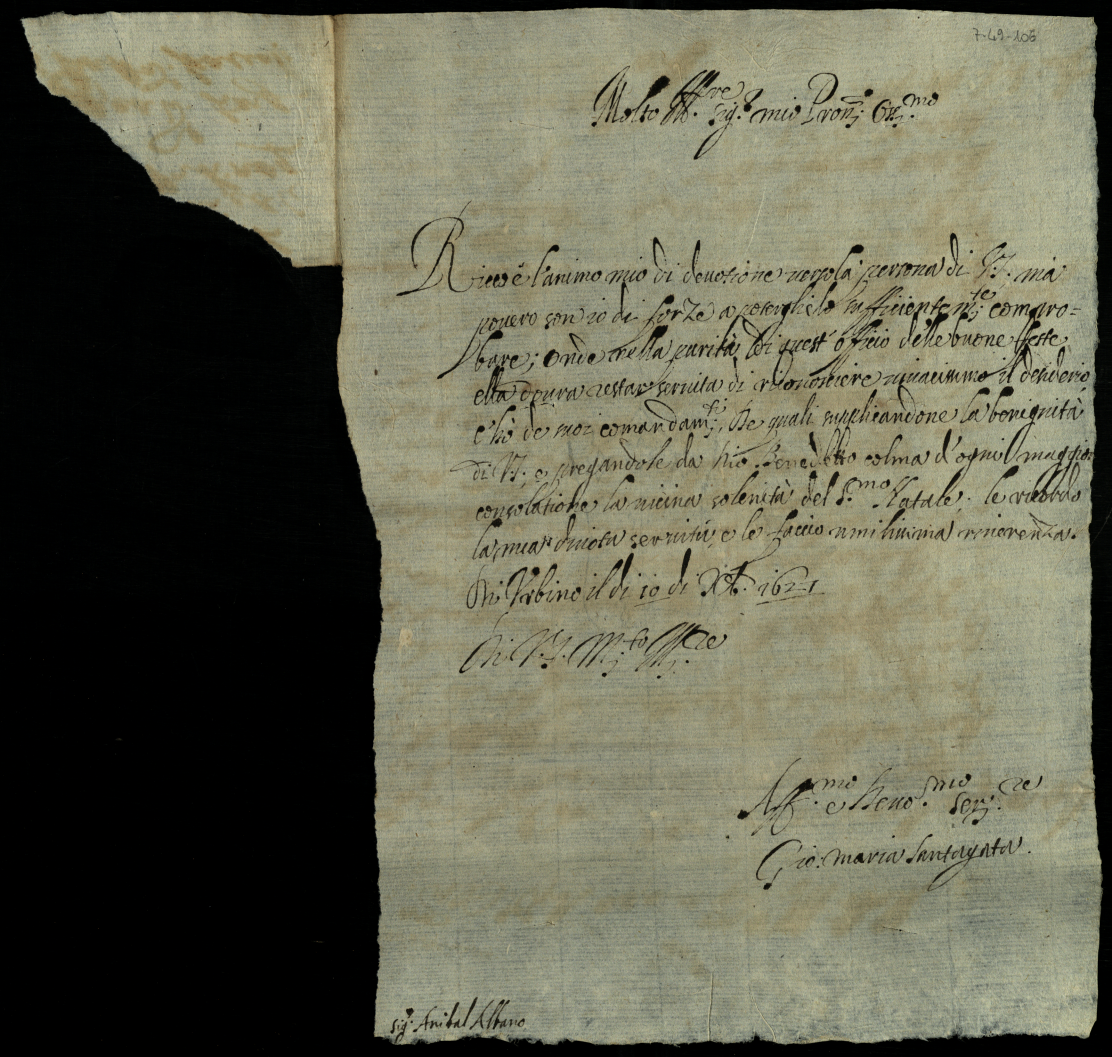 7-49-106
Molto Ill.re Sig.r mio Pron. Oss.mo
Ricco è l'animo mio di devotione verso la persona di V.S. mà
povero son io di forze a poterglielo sufficientem.te compro=
bare; onde nella purità di quest' officio delle buone feste
ella dovrà restar servita di riconoscere vivacissimo il desiderio
c'hò de suoi comandam.ti, de quali supplicandone la benignità
di V.S. e pregandole da Dio Benedetto colma d'ogni maggior
consolatione la vicina solenità del S.mo Natale; le ricordo
la mia divota servitù, e le faccio umilissima riverenza.
Di Urbino il di 10 di Xb. 1621
Di V.S. M.to Ill.re
Aff.mo e Devo.mo Ser.re
Gio. Maria Santagata.
Sig. Anibal Albano